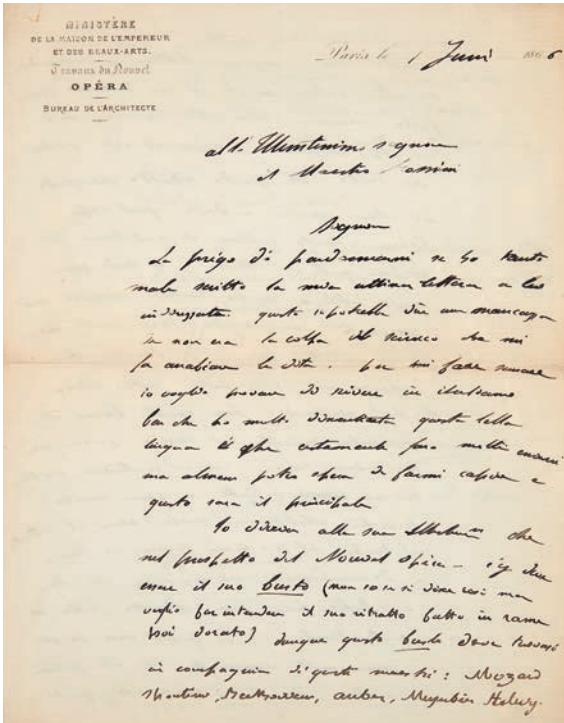 MINISTÈRE
DE LA MAISON DE L'EMPEREUR
ET DES BEAUX-ARTS.
Travaux du Nouvel
OPÉRA
BUREAU DE L'ARCHITECTE
Paris le 1 Juni 1866
all' Illustrissimo signore
il Maestro Rossini
Signor
La prego di perdonarmi se ho tanto
male scritto la mia ultima lettera a lei
indirizzata. questo si potrebbe dire una mancanza
se non era la colpa del che mi
fa le dita. per mi fare
io voglio provare di scrivere in italiano
ben che ho molto dimenticata questa bella
lingua e che certamente faro molti errori
ma almeno potro sperar di farmi capire e
questo sara il principale
Io diceva alla sua che
nel prospetto del Nouvel Opéra - deve
essere il suo busto (non so se si dice cosi ma
voglio far intendere il suo ritratto fatto in rame
poi dorato) dunque questo busto deve trovarsi
in compagnia di questi maestri: Mozard
Spontini, Beethowen, auber, Meyerbeer Halevy.